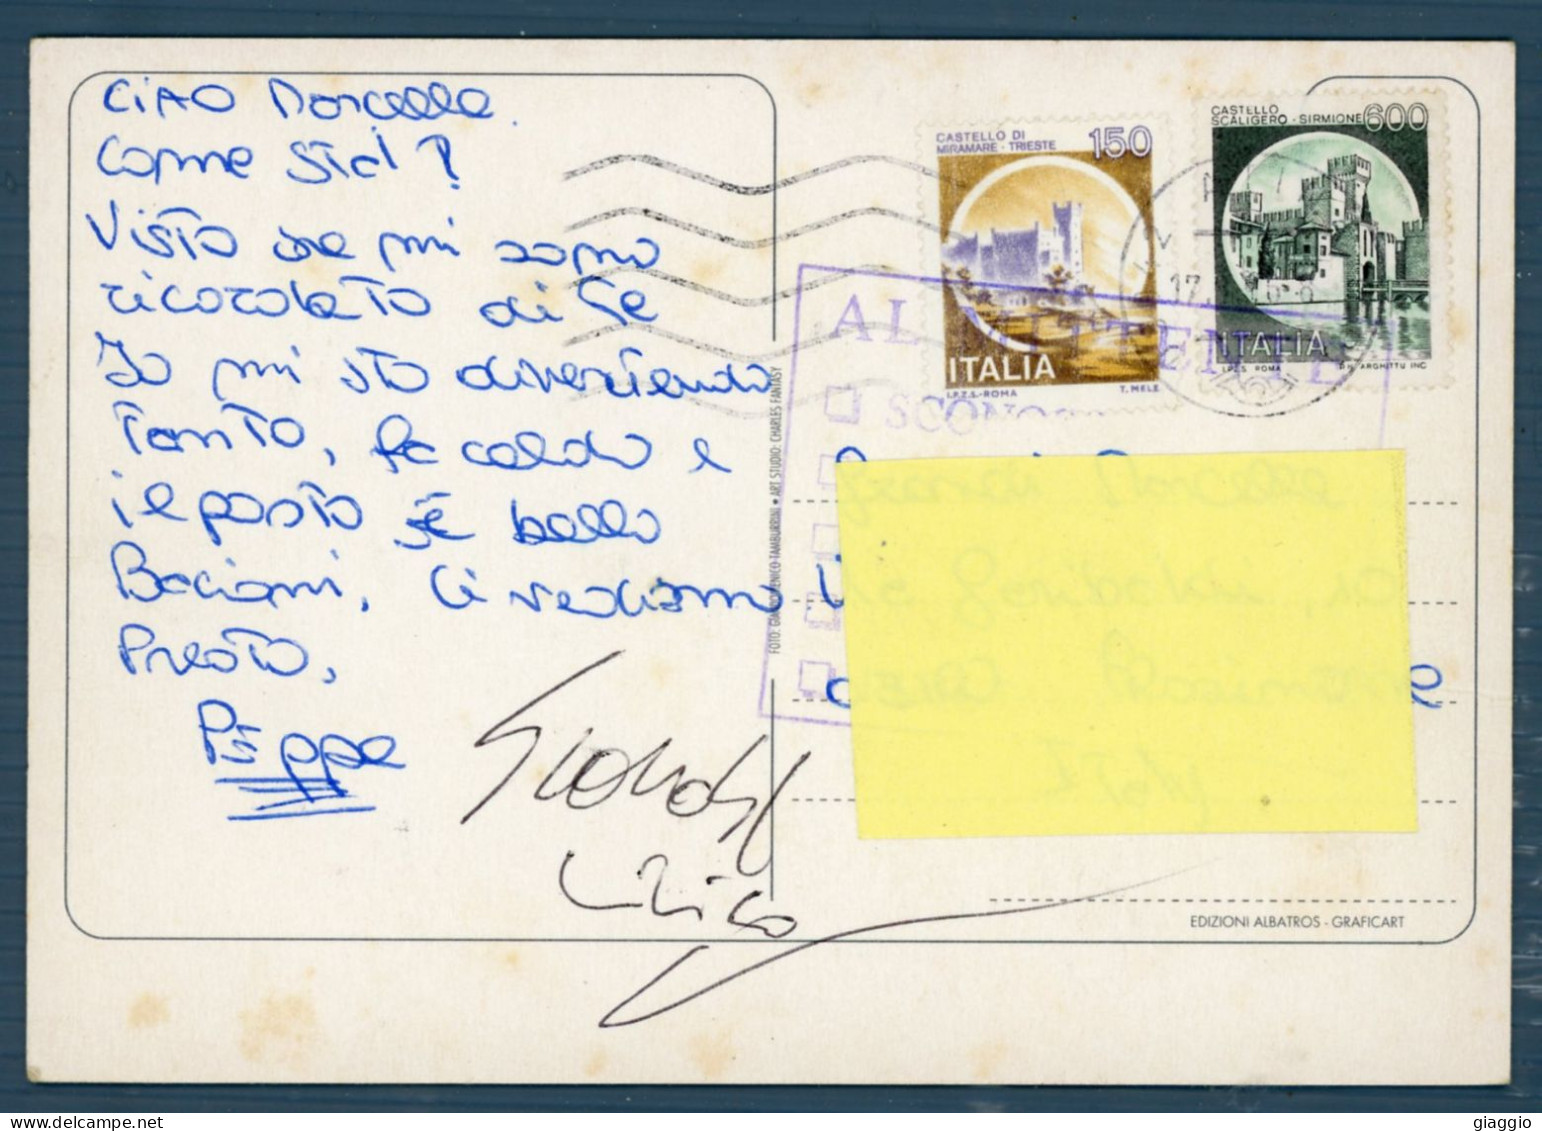 CIAO Marcella.
Come stai?
Visto che mi sono
ricordato di te
Io mi sto divertendo
Tanto, fa caldo e
il posto è bello
Bacioni, Ci vediamo
Presto,
Peppe
CASTELLO DI
MIRAMARE - TRIESTE
150
ITALIA
I.P.Z.S.-ROMA T. MELE
CASTELLO
SCALIGERO - SIRMIONE
600
ITALIA
I.P.Z.S. ROMA D'N. ARGHITTU INC
17.
AL MITTENTE
FOTO: GIANDOMENICO TAMBURRINI • ART STUDIO: CHARLES FANTASY
EDIZIONI ALBATROS - GRAFICART
giaggio